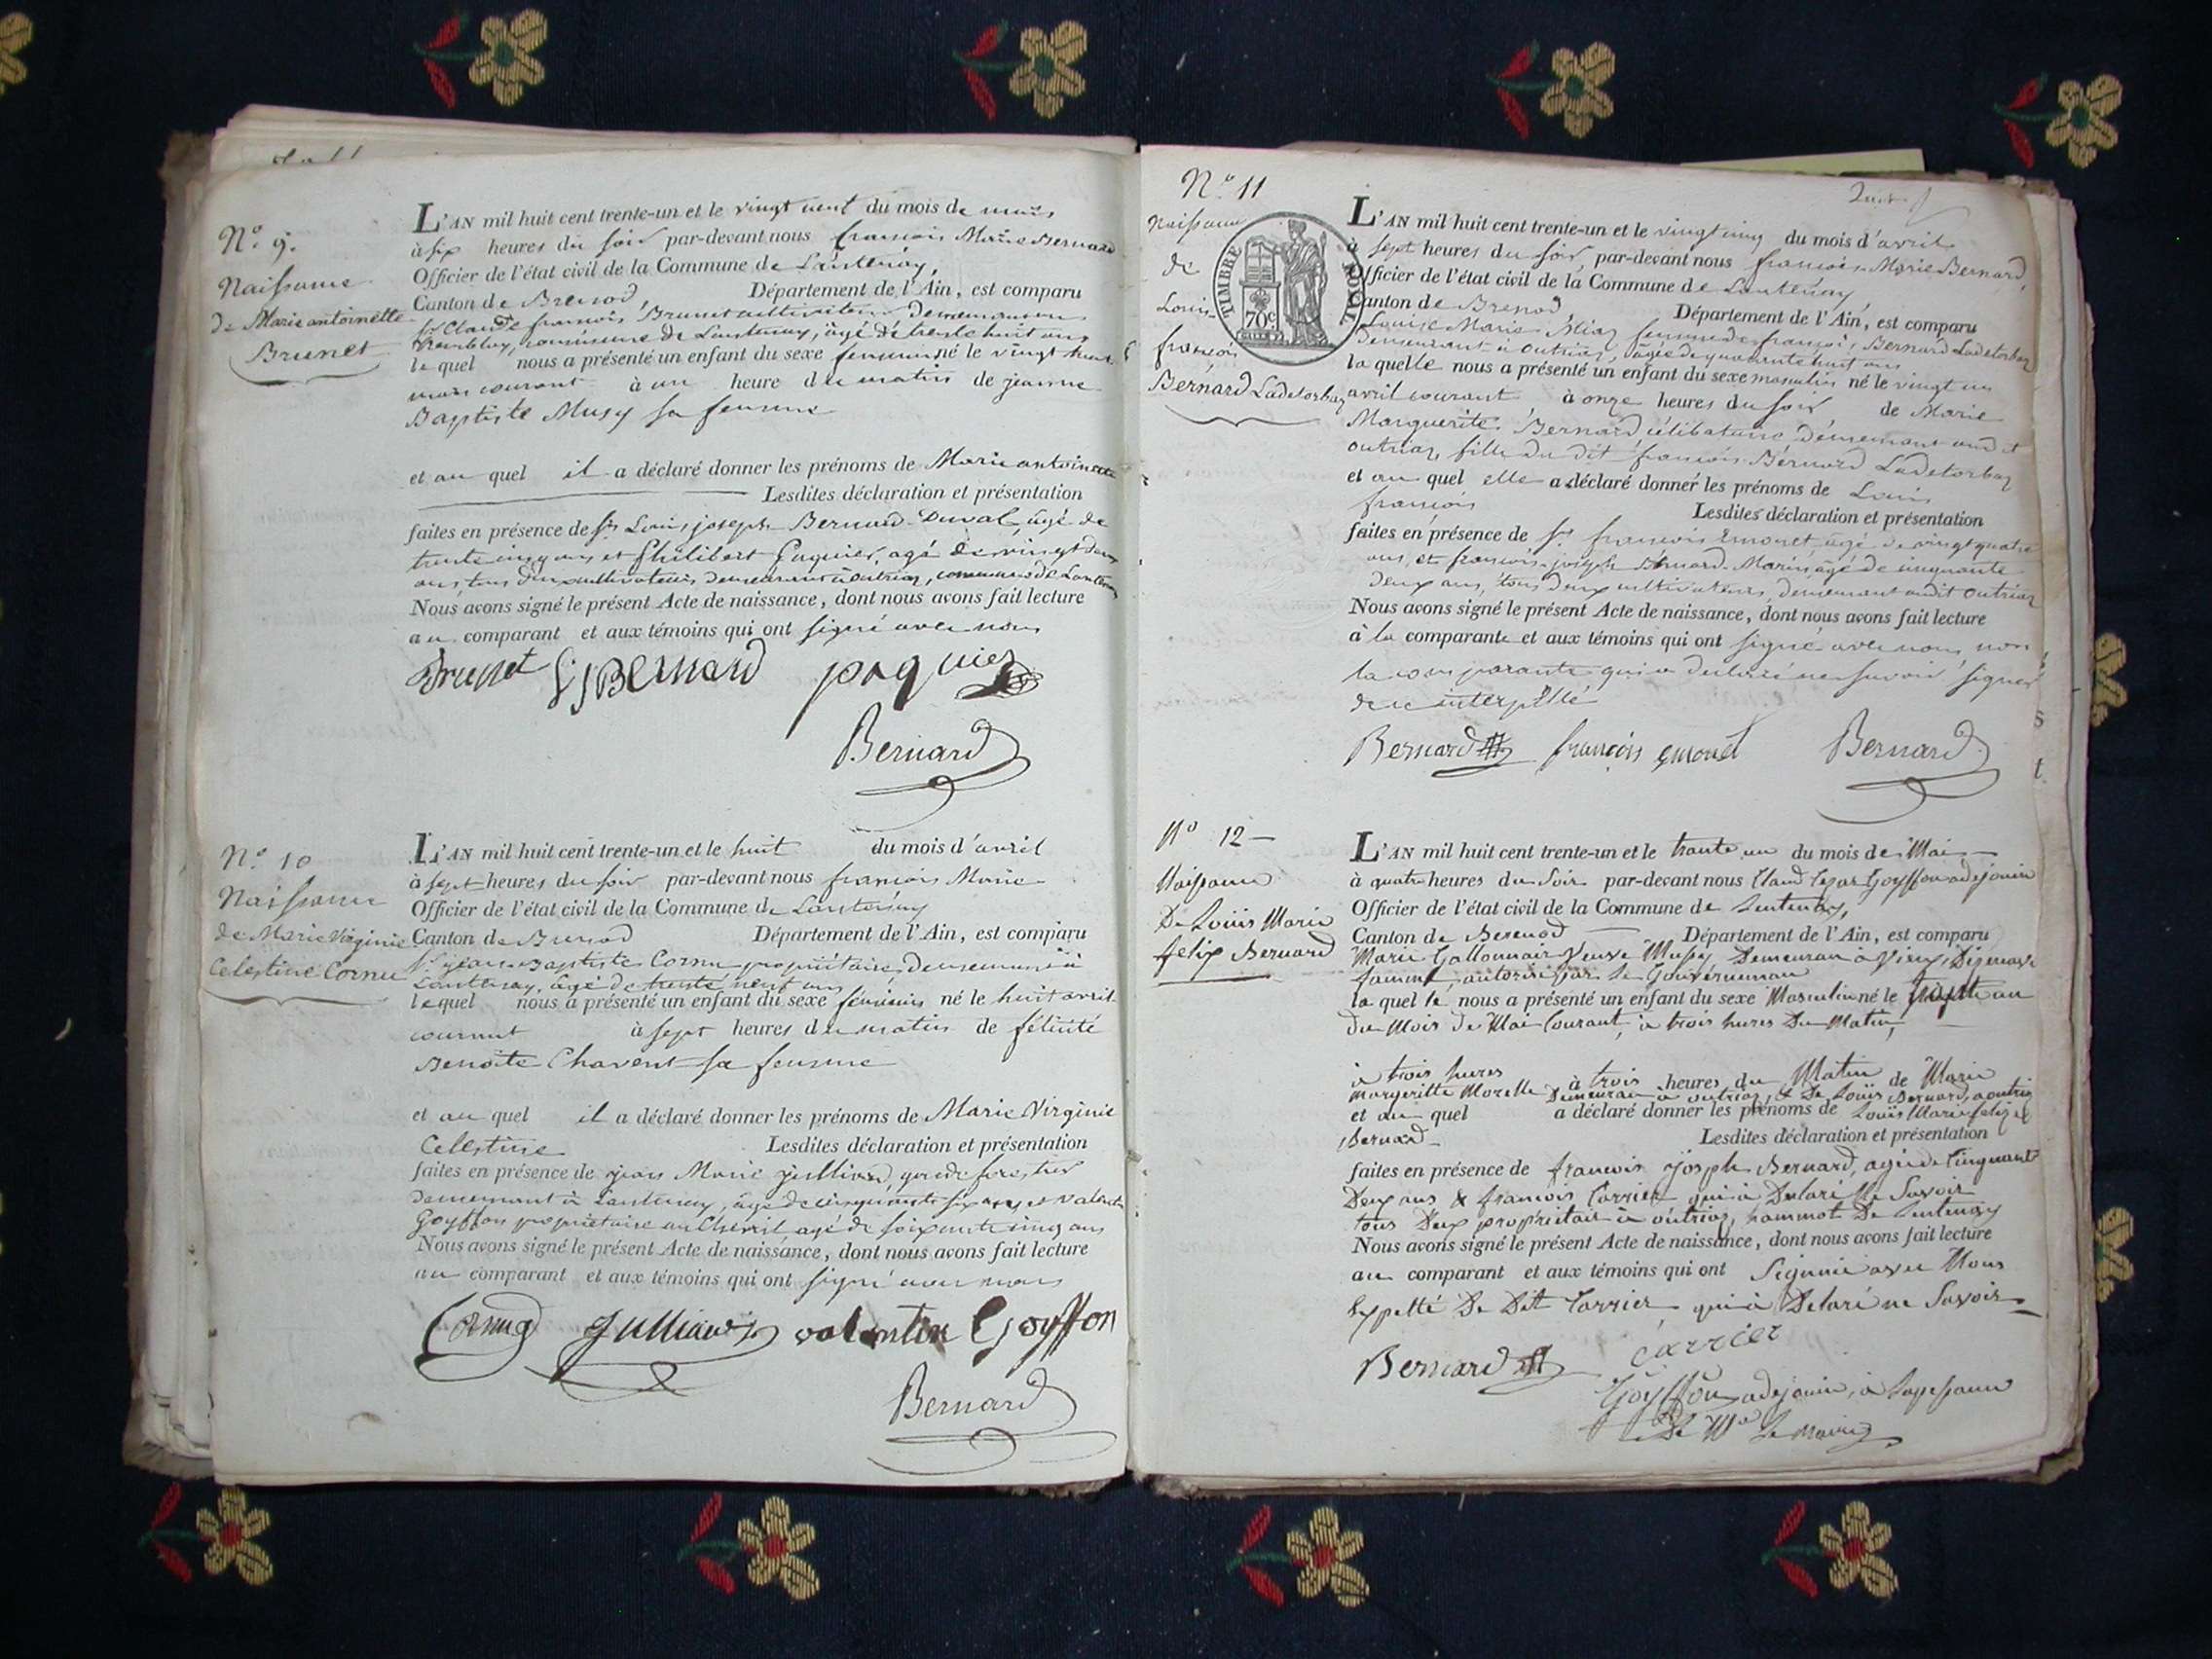 N.º 9.
Naissance
de Marie antoinette
Brunet
L'AN mil huit cent trente-un et le vingt neuf du mois de mars
à six heures du soir par-devant nous françois Marie Bernard
Officier de l'état civil de la Commune de Lantenay,
Canton de Brenod, Département de l'Ain, est comparu
Sr Claude françois Brunet cultivateur demeurant
commune de Lantenay, âgé de trente huit ans
lequel nous a présenté un enfant du sexe feminin né le vingt
mars courant à une heure du matin de jeanne
Baptiste Musy sa femme
et au quel il a déclaré donner les prénoms de Marie antoinette
Lesdites déclaration et présentation
faites en présence de Sr Louis joseph Bernard Duval, âgé de
trente cinq ans et Philibert Paquier, agé de vingt deux
ans, tous deux cultivateurs demeurant à outriaz, commune de Lantenay
Nous avons signé le présent Acte de naissance, dont nous avons fait lecture
au comparant et aux témoins qui ont signé avec nous
Brunet LjBernard paquier
Bernard
N.º 10
Naissance
de Marie Virginie
Celestine Cornu
L'AN mil huit cent trente-un et le huit du mois d'avril
à sept heures du soir par-devant nous françois Marie
Officier de l'état civil de la Commune de Lantenay
Canton de Brenod Département de l'Ain, est comparu
Sr jean-Baptiste Cornu propriétaire, demeurant à
Lantenay, âgé de trente neuf ans
lequel nous a présenté un enfant du sexe féminin né le huit avril
courant à sept heures du matin de félicité
Benoite Chavent sa femme
et au quel il a déclaré donner les prénoms de Marie Virginie
Celestine Lesdites déclaration et présentation
faites en présence de jean Marie jullian, garde forestier
demeurant à Lantenay, âgé de cinquante six ans, et valentin
Goyffon propriétaire au agé de soixante cinq ans
Nous avons signé le présent Acte de naissance, dont nous avons fait lecture
au comparant et aux témoins qui ont signé avec nous
Cornu Jullian valentin Goyffon
Bernard
N.º 11
Naissance
de
Louis
françois
Bernard Ladetorbaz
TIMBRE ROYAL
70c.
L'AN mil huit cent trente-un et le vingt cinq du mois d'avril
à sept heures du soir par-devant nous françois-Marie Bernard,
Officier de l'état civil de la Commune de Lantenay
Canton de Brenod Département de l'Ain, est comparu
Louise Marie femme de françois Bernard Ladetorbaz
demeurant à outriaz, âgée de quarante huit ans
la quelle nous a présenté un enfant du sexe masculin né le vingt un
avril courant à onze heures du soir de Marie
Marguerite Bernard célibataire, demeurant audit
outriaz, fille du dit françois Bernard Ladetorbaz
et au quel elle a déclaré donner les prénoms de Louis
françois Lesdites déclaration et présentation
faites en présence de Sr françois Emonet, agé de vingt quatre
ans, et françois-joseph Bernard-Marin, âgé de cinquante
deux ans, tous deux cultivateurs, demeurant audit outriaz
Nous avons signé le présent Acte de naissance, dont nous avons fait lecture
à la comparante et aux témoins qui ont signé avec nous, non
la comparante qui a déclaré ne savoir signer
de ce interpellé
Bernard françois emonet Bernard
Nº 12
Naissance
De Louis Marie
felix Bernard
L'AN mil huit cent trente-un et le trante un du mois de Mai
à quatre heures du Soir par-devant nous Claud Cezar Goyffon adejouin
Officier de l'état civil de la Commune de Lentenay,
Canton de Berenod Département de l'Ain, est comparu
Marie Gallonnair Veuve Musy Demeuran a Vieux
famme, autorisé par le Gouverneman
la quel le nous a présenté un enfant du sexe Masculin né le trante un
du Mois de Mai Courant, à trois hures Du Matin,
à trois hures à trois heures du Matin de Marie
Margeritte Morelle Demeuran à outriaz, & De Louis Bernard, a outriaz
et au quel a déclaré donner les prénoms de Louis Marie felix
Bernard Lesdites déclaration et présentation
faites en présence de francois Joseph Bernard, agé de Cinquant
Deux ans & francois Carrier qui à Delaré Savoir
tous Deux proprietair à outriaz, commot De Lentenay
Nous avons signé le présent Acte de naissance, dont nous avons fait lecture
au comparant et aux témoins qui ont avec Nous
De Dit Carrier qui à Delaré ne Savoir
Bernard carrier
Goyffon adejouin, à
De Mr Le maire